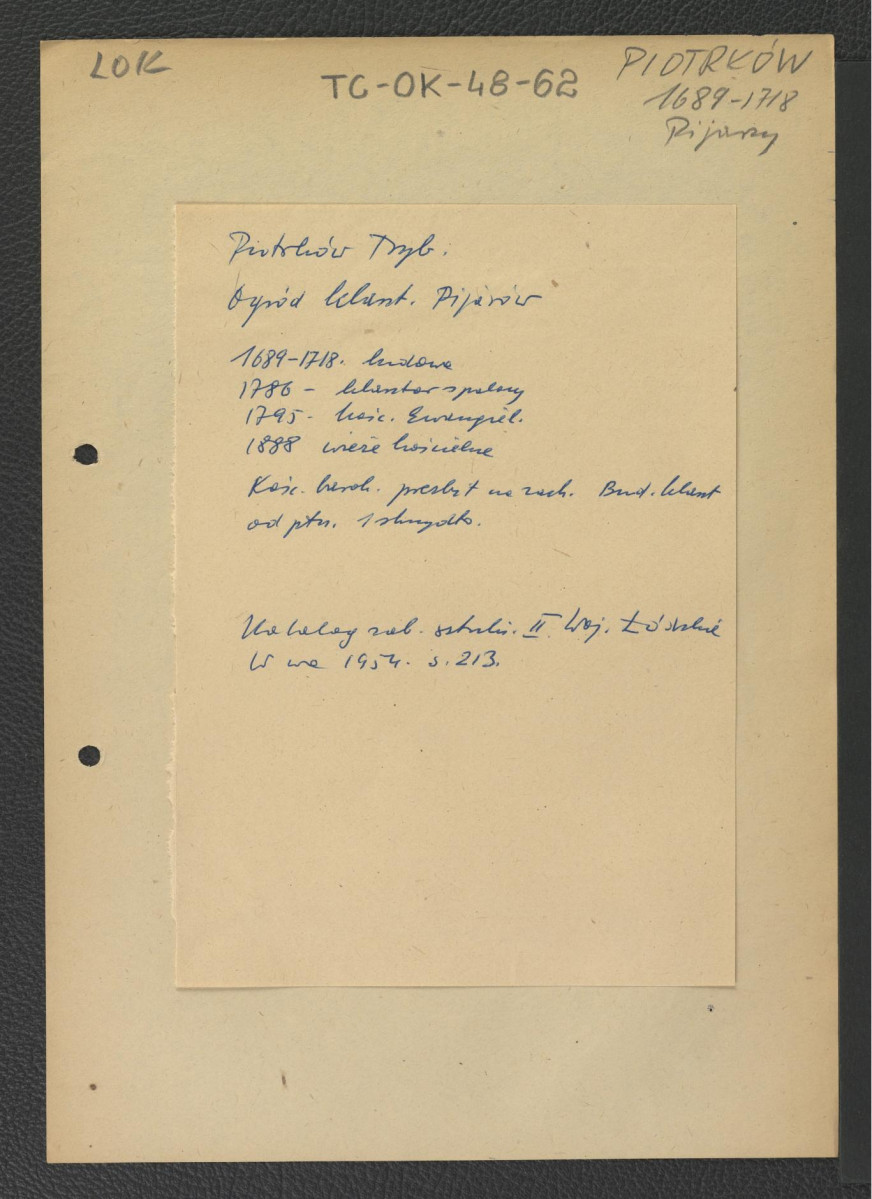 LOK
TC-OK-48-62
PIOTRKÓW
1689-1718
Pijarzy
Piotrków Tryb.
Ogród klaszt. Pijarów
1689-1718. budowa
1786 - klasztor spalony
1795 - kośc. Ewangiel.
1888 wieże kościelne
Kośc. barok. prezbyt na zach. Bud. klaszt
od płn. 1 skrzydło.
Katalog zab. sztuki. II Woj. Łódzkie
W wa 1954. s. 213.